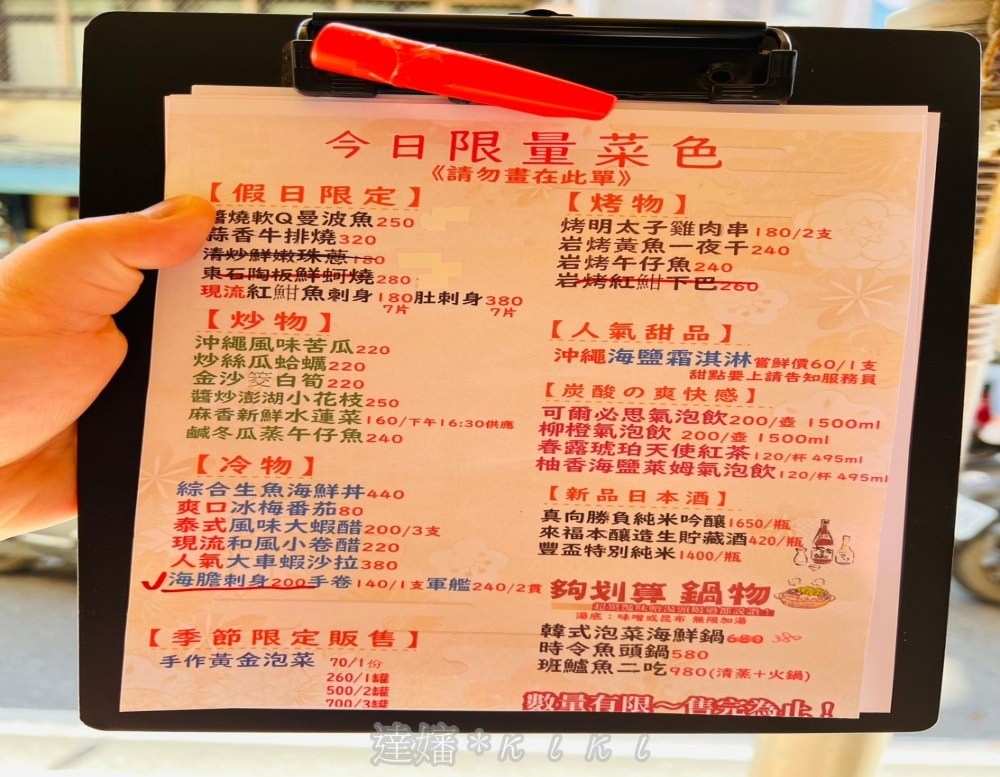 今日限量菜色
《請勿畫在此單》
【假日限定】
醬燒軟Q曼波魚250
蒜香牛排燒320
清炒鮮嫩珠蔥180
東石陶板鮮蚵燒280
現流紅魽魚刺身180肚刺身380
7片 7片
【炒物】
沖繩風味苦瓜220
炒絲瓜蛤蠣220
金沙筊白筍220
醬炒澎湖小花枝250
麻香新鮮水蓮菜160/下午16:30供應
鹹冬瓜蒸午仔魚240
【冷物】
綜合生魚海鮮丼440
爽口冰梅番茄80
泰式風味大蝦醋200/3支
現流和風小卷醋220
人氣大車蝦沙拉380
海膽刺身200手卷140/1支軍艦240/2貫
【季節限定販售】
手作黃金泡菜 70/1份
260/1罐
500/2罐
700/3罐
【烤物】
烤明太子雞肉串180/2支
岩烤黃魚一夜干240
岩烤午仔魚240
岩烤紅魽下巴260
【人氣甜品】
沖繩海鹽霜淇淋嘗鮮價60/1支
甜點要上請告知服務員
【炭酸の爽快感】
可爾必思氣泡飲200/壺 1500ml
柳橙氣泡飲 200/壺 1500ml
春露琥珀天使紅茶120/杯 495ml
柚香海鹽萊姆氣泡飲120/杯 495ml
【新品日本酒】
真向勝負純米吟釀1650/瓶
來福本釀造生貯藏酒420/瓶
豐盃特別純米1400/瓶
夠划算 鍋物
湯底：味噌或昆布 無限加湯
韓式泡菜海鮮鍋680 380
時令魚頭鍋580
斑鱸魚二吃980(清蒸+火鍋)
數量有限～售完為止！
達嬸*KiKi